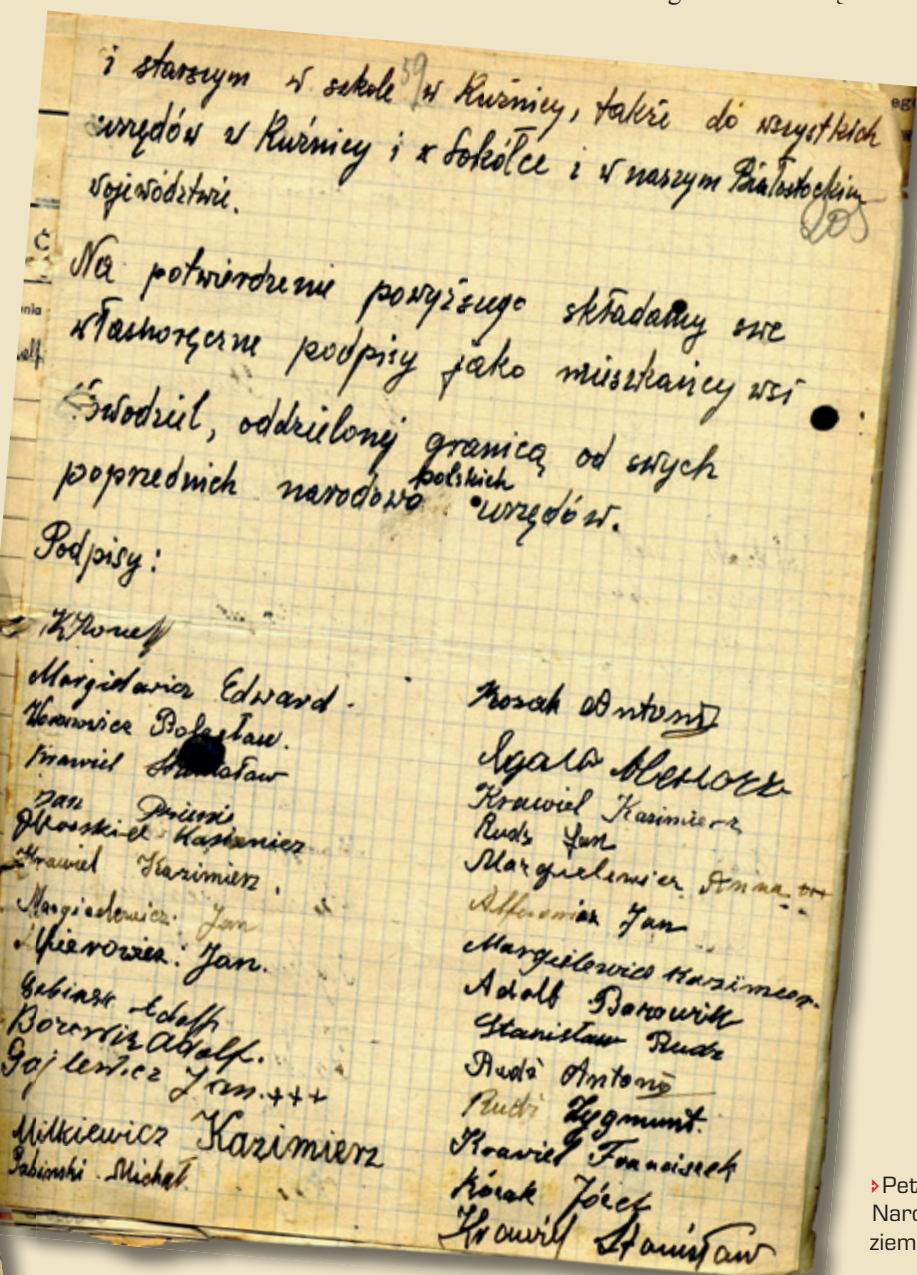 i starszym w szkole w Kuźnicy, także do wszystkich
urzędów w Kuźnicy i w Sokółce i w naszym Białostockim
województwie.
59
205
Na potwierdzenie powyższego składamy swe
własnoręczne podpisy jako mieszkańcy wsi
oddzielonej granicą od swych
poprzednich narodowo polskich urzędów.
Podpisy:
Margielewicz Edward.
Bolesław.
Krawiel Stanisław
Jan
Krawiel Kazimierz.
Margielewicz Jan
Jan.
Adolf
Borowik Adolf.
Gajlewicz Jan. +++
Milkiewicz Kazimierz
Sabinski Michał
Kozak Antoni
Krawiel Kazimierz
Rudz Jan
Margielewicz Anna
Jan
Margielewicz Kazimierz.
Adolf Borowik
Stanisław Rudz
Rudź Antoni
Rudź Zygmunt.
Krawiel Franciszek
Kozak Józef
Krawiel Stanisław
Pet
Naro
ziem